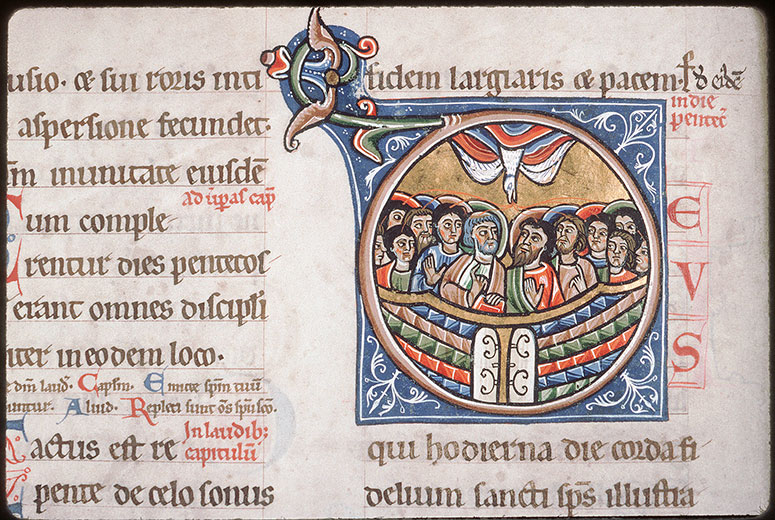 usio. et sui roris inti
aspersione fecundet.
in die
m in unitate eiusdē
ad vp̄as cap̄
Cum comple
rentur dies pentecos
erant omnes discipli
iter in eodem loco.
Capm̄. Emitte spm̄ tuū
untur. Aliud. Repleti sunt oēs spū scō.
Factus est re
In laudib;
capitulū
pente de celo sonus
fidem largiaris et pacem.
in die
pentec̄
DEUS
qui hodierna die corda fi
delium sancti sps̄ illustra